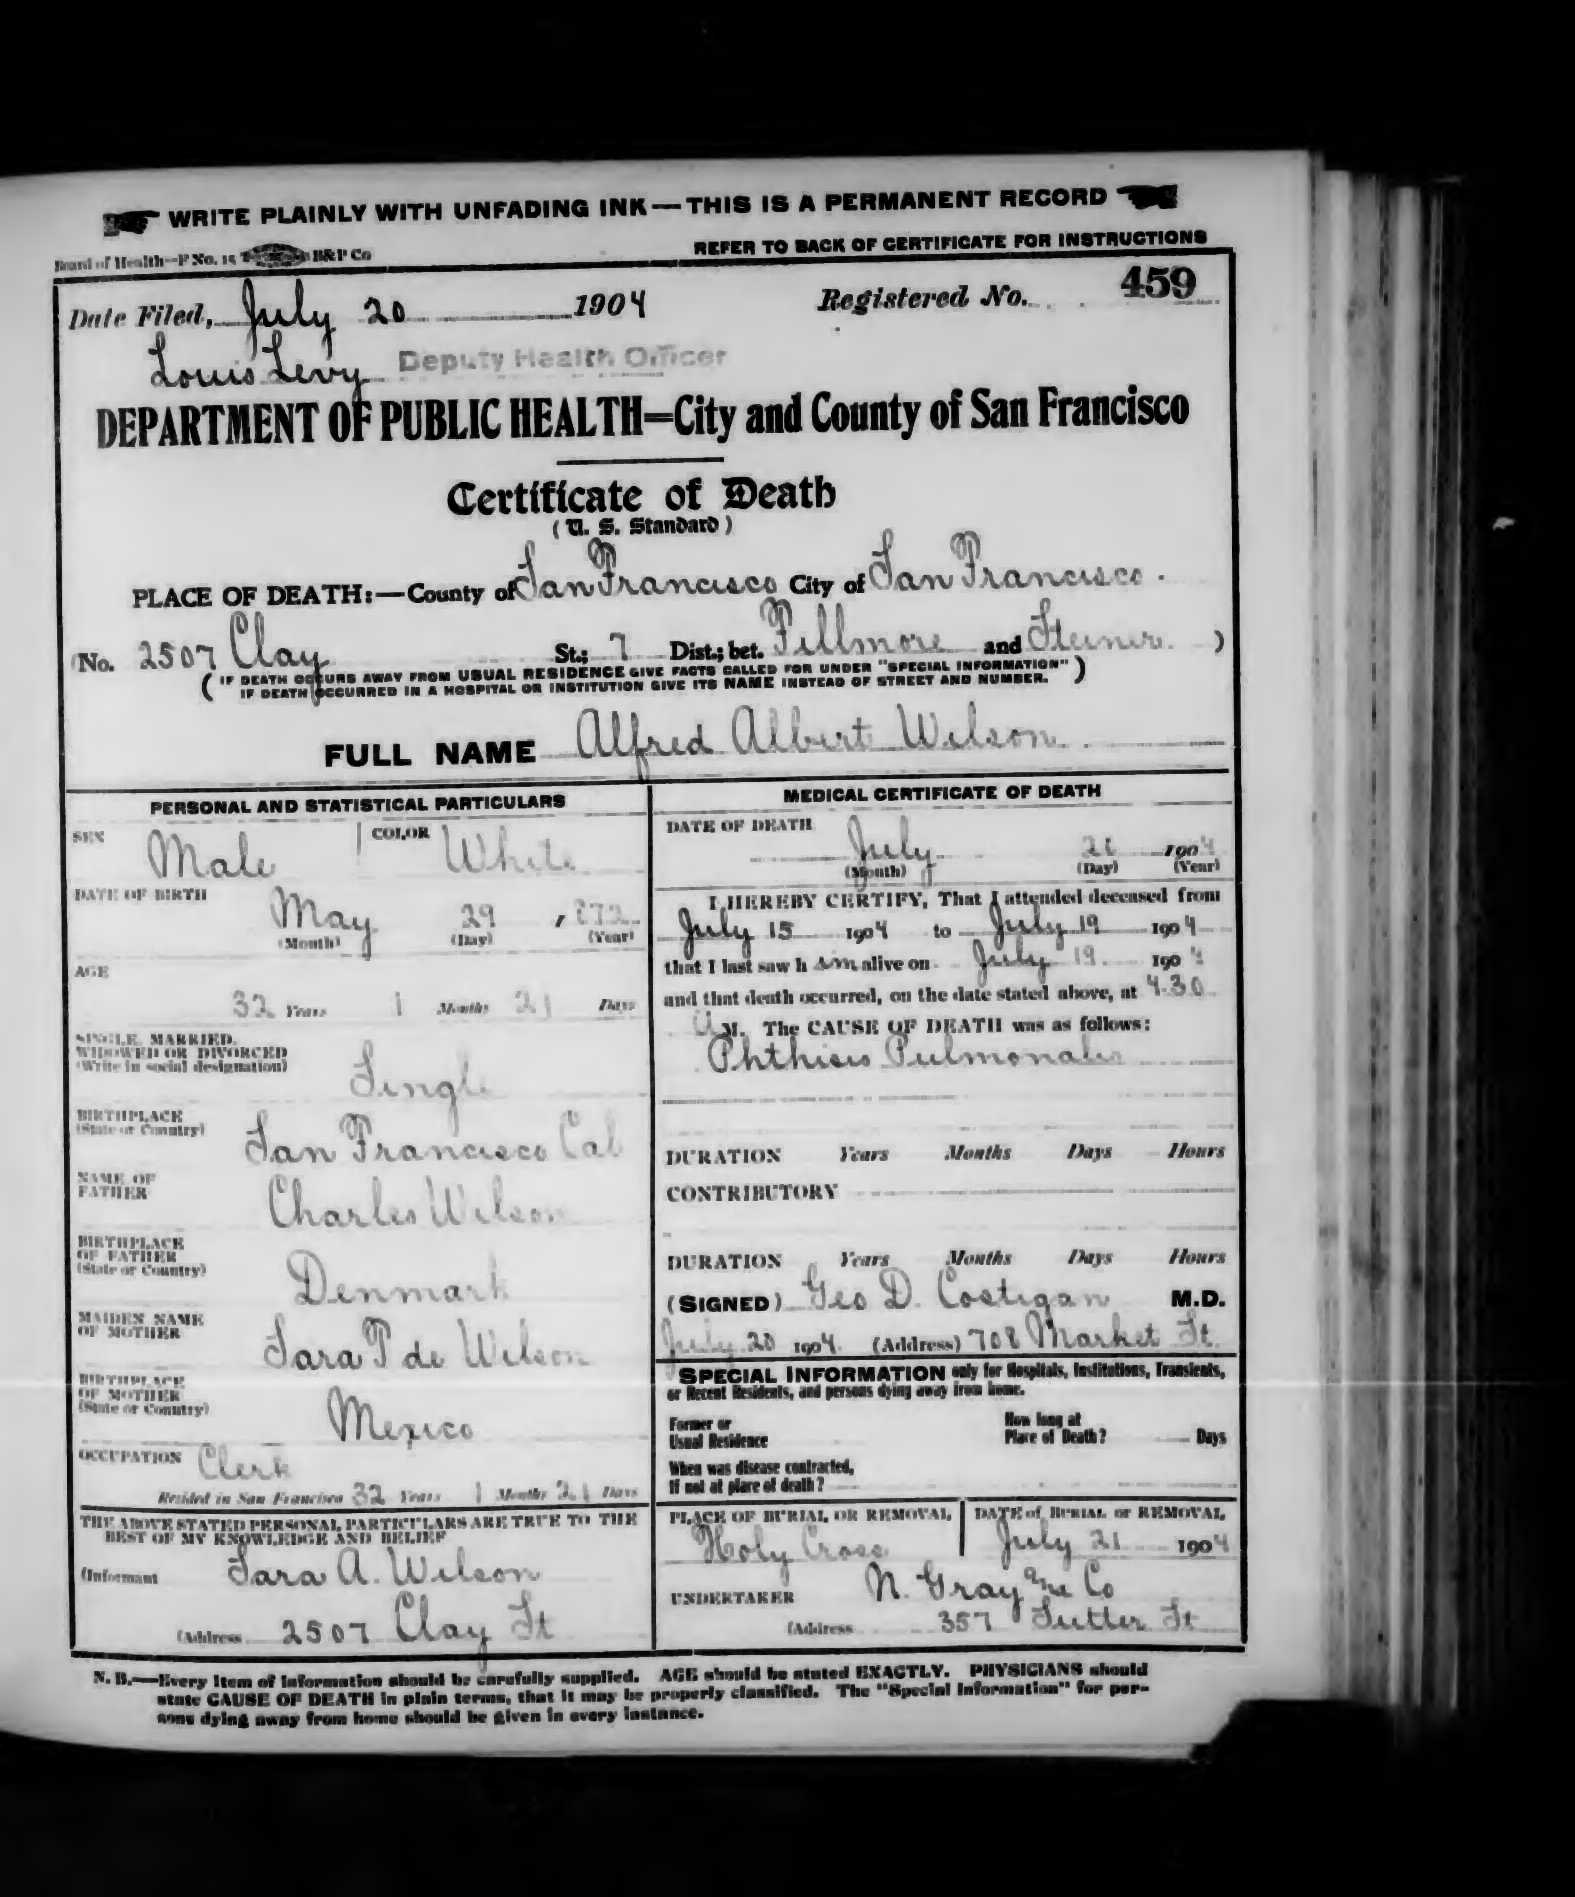 WRITE PLAINLY WITH UNFADING INK—THIS IS A PERMANENT RECORD
Board of Health—F No. 15 B&P Co
REFER TO BACK OF CERTIFICATE FOR INSTRUCTIONS
Date Filed, July 20 1904 Registered No. 459
Louis Levy Deputy Health Officer
DEPARTMENT OF PUBLIC HEALTH=City and County of San Francisco
Certificate of Death
(U. S. Standard)
PLACE OF DEATH:—County of San Francisco City of San Francisco.
(No. 2507 Clay St.; 7 Dist.; bet. Fillmore and Steiner )
(IF DEATH OCCURS AWAY FROM USUAL RESIDENCE GIVE FACTS CALLED FOR UNDER "SPECIAL INFORMATION"
IF DEATH OCCURRED IN A HOSPITAL OR INSTITUTION GIVE ITS NAME INSTEAD OF STREET AND NUMBER.)
FULL NAME Alfred Albert Wilson
PERSONAL AND STATISTICAL PARTICULARS
SEX Male COLOR White
DATE OF BIRTH
May 29, 872
(Month) (Day) (Year)
AGE
32 Years 1 Months 21 Days
SINGLE, MARRIED,
WIDOWED OR DIVORCED
(Write in social designation) Single
BIRTHPLACE
(State or Country) San Francisco Cal
NAME OF
FATHER Charles Wilson
BIRTHPLACE
OF FATHER
(State or Country) Denmark
MAIDEN NAME
OF MOTHER Sara P de Wilson
BIRTHPLACE
OF MOTHER
(State or Country) Mexico
OCCUPATION Clerk
Resided in San Francisco 32 Years 1 Months 21 Days
THE ABOVE STATED PERSONAL PARTICULARS ARE TRUE TO THE
BEST OF MY KNOWLEDGE AND BELIEF
(Informant Sara A. Wilson
(Address 2507 Clay St
MEDICAL CERTIFICATE OF DEATH
DATE OF DEATH
July 20 1904
(Month) (Day) (Year)
I HEREBY CERTIFY, That I attended deceased from
July 15 1904 to July 19 1904
that I last saw him alive on July 19 1904
and that death occurred, on the date stated above, at 4.30
a M. The CAUSE OF DEATH was as follows:
Phthisis Pulmonalis
DURATION Years Months Days Hours
CONTRIBUTORY
DURATION Years Months Days Hours
(SIGNED) Geo D. Costigan M.D.
July 20 1904. (Address) 708 Market St.
SPECIAL INFORMATION only for Hospitals, Institutions, Transients,
or Recent Residents, and persons dying away from home.
Former or
Usual Residence
How long at
Place of Death? Days
When was disease contracted,
If not at place of death?
PLACE OF BURIAL OR REMOVAL
Holy Cross
DATE of BURIAL or REMOVAL
July 21 1904
UNDERTAKER N. Gray and Co
(Address 357 Sutter St
N. B.—Every item of information should be carefully supplied. AGE should be stated EXACTLY. PHYSICIANS should
state CAUSE OF DEATH in plain terms, that it may be properly classified. The "Special Information" for per-
sons dying away from home should be given in every instance.